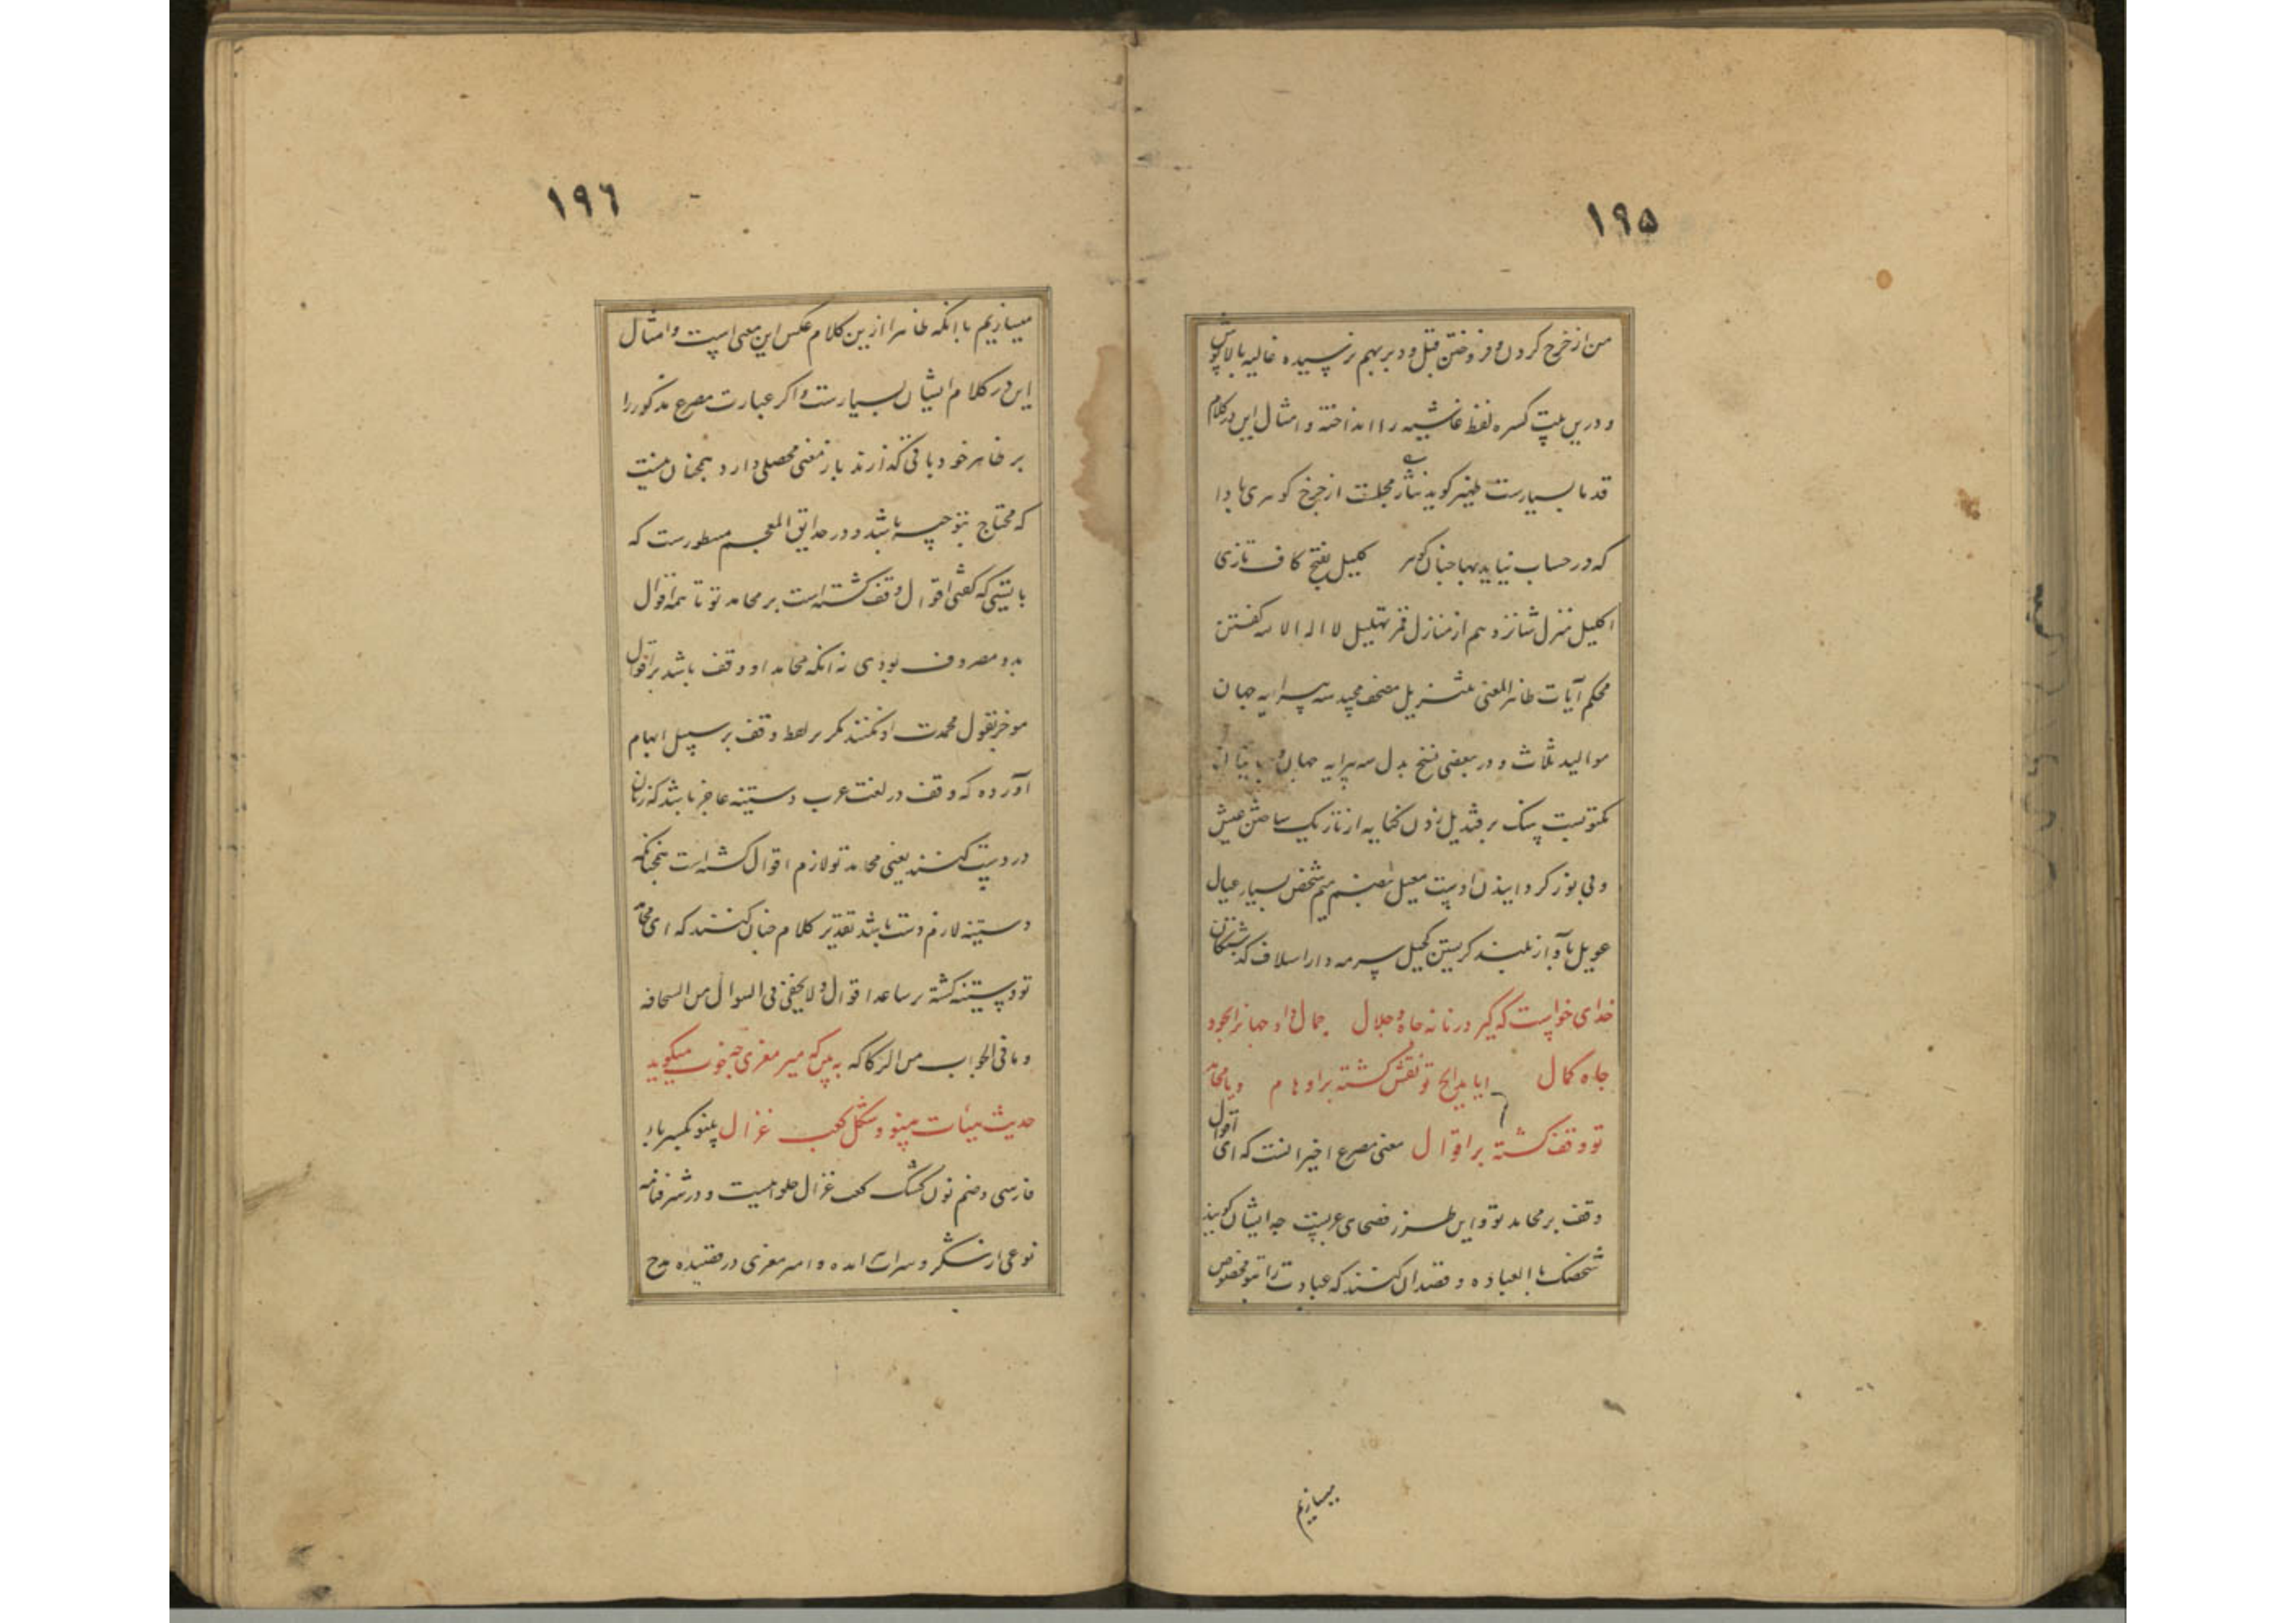 ۱۹۵
من از خرج کردن و فروختن قبل و دبر بهم نرسیده غالیه بالاپوش
و درین بیت کسره لفظ غاشیه را انداخته و امثال این در کلام
قدما بسیارست ظهیر کوید نثار مجلست از چرخ کوهری بادا
که در حساب نیاید بهاء چنان کوهر کلیل بفتح کاف تازی
اکلیل منزل شانزدهم از منازل قمر تهلیل لا اله الا الله کفتن
محکم آیات ظاهر المعنی تنزیل مصحف مجید سه پیرایه جهان
موالید ثلاث و در بعضی نسخ بدل سه پیرایه جهان
مکتوبست سنک بر قندیل زدن کنایه از تاریک ساختن عیش
و بی نور کردانیدن اوست معیل بضم میم شخص بسیار عیال
عویل بآواز بلند کریستن کحیل سرمه دار اسلاف کذشتکان
خدای خواست که کیرد زمانه جاه و جلال جمال داد جهانرا بجود
جاه کمال ایا مدایح تو نقش کشته بر اوهام و یا محامد
تو وقف کشته بر اقوال معنی مصرع اخیر انست که ای اقوال
وقف بر محامد تو و این طرز فصحای عربست چه ایشان کویند
نخصک بالعباده و قصد ان کنند که عبادت را بتو مخصوص
میسازیم
۱۹٦
میسازیم با انکه ظاهرا ازین کلام عکس این معنی است و امثال
این در کلام ایشان بسیارست و اکر عبارت مصرع مذکور را
بر ظاهر خود باقی کذارند باز معنی محصلی دارد همچنان نیست
که محتاج بتوجیه باشد و در حدایق المعجم مسطورست که
بایستی که کفتی اقوال وقف کشته است بر محامد تو تا همه اقوال
بدو مصروف بودی نه انکه محامد او وقف باشد بر اقوال
موخر بقول محمدت او نکنند مکر بر لفظ وقف بر سبیل ابهام
آورده که وقف در لغت عرب دستینه عاج باشد که زنان
در دست کنند یعنی محامد تو لازم اقوال کشته است همچنانکه
دستینه لازم دست باشد تقدیر کلام چنان کنند که ای محامد
تو دستینه کشته بر ساعد اقوال و لا یخفی ما فی السوال من السخافه
و ما فی الجواب من الرکاکه ببین که میر معزی چه خوب میکوید
حدیث هیأت پینو و شکل کعب غزال پینو بکسر باء
فارسی و ضم نون کشک کعب غزال حلوائیست و در شرفنامه
نوعی از شکر و امیر معزی در قصیده مدح